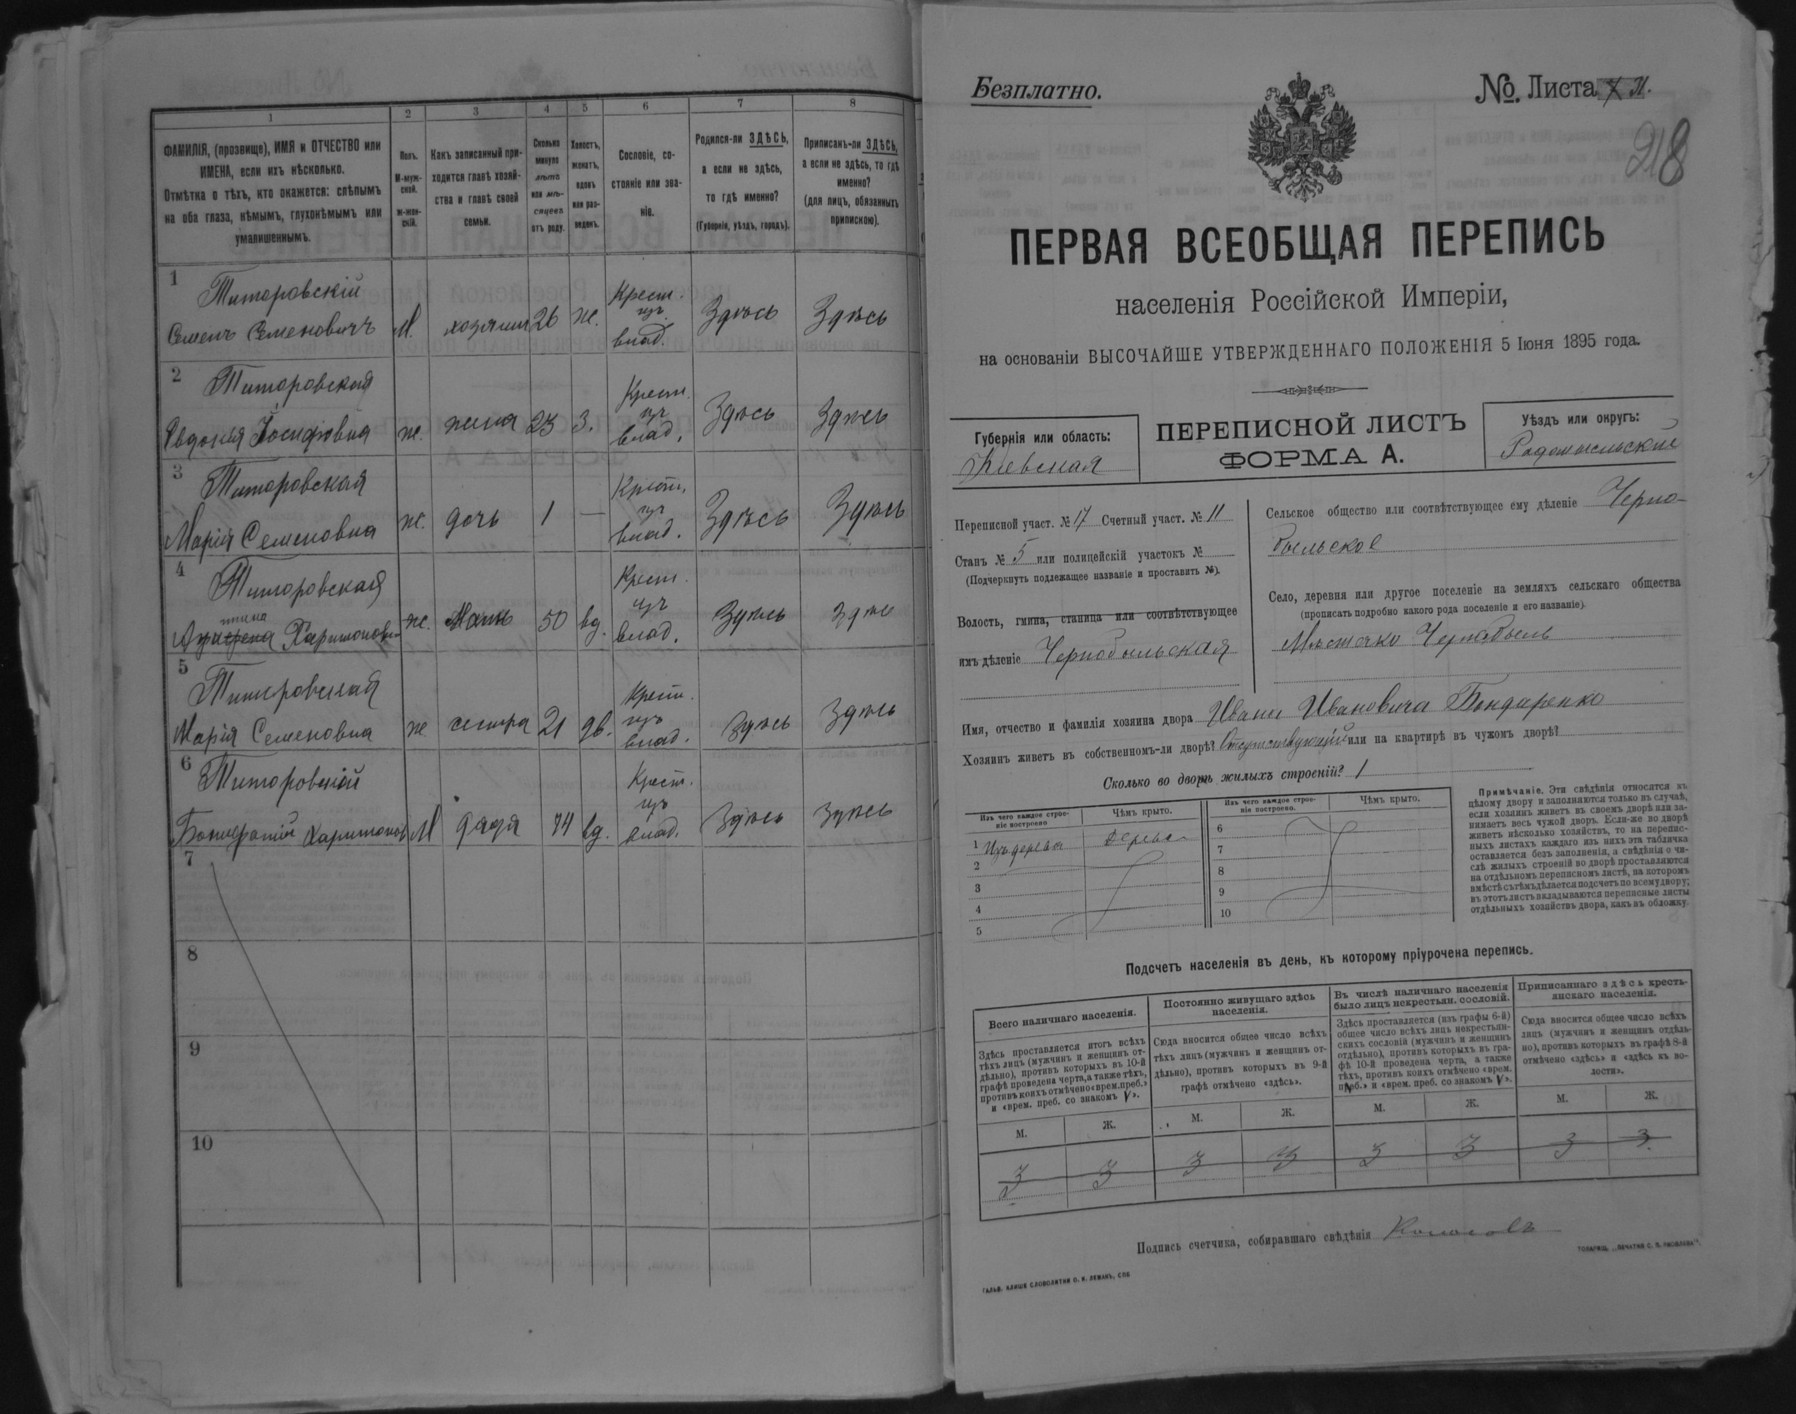 1 2 3 4 5 6 7 8
ФАМИЛІЯ, (прозвище), ИМЯ и ОТЧЕСТВО или
ИМЕНА, если ихъ нѣсколько.
Отмѣтка о тѣхъ, кто окажется: слѣпымъ
на оба глаза, нѣмымъ, глухонѣмымъ или
умалишеннымъ.
Полъ.
М-муж-
ской.
Ж-жен-
скій.
Какъ записанный при-
ходится главѣ хозяй-
ства и главѣ своей
семьи.
Сколько
минуло
лѣтъ
или мѣ-
сяцевъ
отъ роду.
Холостъ,
женатъ,
вдовъ
или раз-
веденъ.
Сословіе, со-
стояніе или зва-
ніе.
Родился-ли ЗДѢСЬ,
а если не здѣсь,
то гдѣ именно?
(Губернія, уѣздъ, городъ).
Приписанъ-ли ЗДѢСЬ,
а если не здѣсь, то гдѣ
именно?
(для лицъ, обязанныхъ
припискою).
1 Титаровскій
Семенъ Семеновичъ М. хозяинъ 26 ж. Крест. изъ влад. Здѣсь Здѣсь
2 Титаровская
Евдокія Іосифовна ж. жена 23 з. Крест. изъ влад. Здѣсь Здѣсь
3 Титаровская
Марія Семеновна ж. дочь 1 — Крест. изъ влад. Здѣсь Здѣсь
4 Титаровская
Харитонов ж. Мать 50 вд. Крест. изъ влад. Здѣсь Здѣсь
5 Титаровская
Марія Семеновна ж сестра 21 дв. Крест. изъ влад. Здѣсь Здѣсь
6 Титаровскій
Харитонов М дядя 74 вд. Крест. изъ влад. Здѣсь Здѣсь
7
8
9
10
Безплатно.
№. Листа
218
ПЕРВАЯ ВСЕОБЩАЯ ПЕРЕПИСЬ
населенія Россійской Имперіи,
на основаніи ВЫСОЧАЙШЕ УТВЕРЖДЕННАГО ПОЛОЖЕНІЯ 5 Іюня 1895 года.
Губернія или область:
Кіевская
ПЕРЕПИСНОЙ ЛИСТЪ
ФОРМА А.
Уѣздъ или округъ:
Радомысльскій
Переписной участ. № 17 Счетный участ. № 11
Станъ № 5 или полицейскій участокъ №
(Подчеркнуть подлежащее названіе и проставить №).
Волость, гмина, станица или соотвѣтствующее
имъ дѣленіе Чернобыльская
Сельское общество или соотвѣтствующее ему дѣленіе Черно-
быльское
Село, деревня или другое поселеніе на земляхъ сельскаго общества
(прописать подробно какого рода поселеніе и его названіе).
Мѣстечко Чернобыль
Имя, отчество и фамилія хозяина двора Ивана Ивановича Бондаренко
Хозяинъ живетъ въ собственномъ-ли дворѣ? Отсутствующій или на квартирѣ въ чужомъ дворѣ?
Сколько во дворѣ жилыхъ строеній? 1
Изъ чего каждое строе-
ніе построено
Чѣмъ крыто.
Изъ чего каждое строе-
ніе построено.
Чѣмъ крыто.
1 Изъ дерева Дерево
2
3
4
5
6
7
8
9
10
Примѣчаніе. Эти свѣдѣнія относятся къ
цѣлому двору и заполняются только въ случаѣ,
если хозяинъ живетъ въ своемъ дворѣ или за-
нимаетъ весь чужой дворъ. Если-же во дворѣ
живетъ нѣсколько хозяйствъ, то на перепис-
ныхъ листахъ каждаго изъ нихъ эта табличка
оставляется безъ заполненія, а свѣдѣнія о чи-
слѣ жилыхъ строеній во дворѣ проставляются
на отдѣльномъ переписномъ листѣ, на которомъ
вмѣстѣ съ тѣмъ дѣлается подсчетъ по всему двору;
въ этотъ листъ вкладываются переписные листы
отдѣльныхъ хозяйствъ двора, какъ въ обложку.
Подсчетъ населенія въ день, къ которому пріурочена перепись.
Всего наличнаго населенія.
Здѣсь проставляется итогъ всѣхъ
тѣхъ лицъ (мужчинъ и женщинъ от-
дѣльно), противъ которыхъ въ 10-й
графѣ проведена черта, а также тѣхъ,
противъ коихъ отмѣчено «врем. преб.»
и «врем. преб. со знакомъ V».
Постоянно живущаго здѣсь
населенія.
Сюда вносится общее число всѣхъ
тѣхъ лицъ (мужчинъ и женщинъ от-
дѣльно), противъ которыхъ въ 9-й
графѣ отмѣчено «здѣсь».
Въ числѣ наличнаго населенія
было лицъ некрестьян. сословій.
Здѣсь проставляется (изъ графы 6-й)
общее число всѣхъ лицъ некрестьян-
скихъ сословій (мужчинъ и женщинъ
отдѣльно), противъ которыхъ въ гра-
фѣ 10-й проведена черта, а также
тѣхъ, противъ коихъ отмѣчено «врем.
преб.» и «врем. преб. со знакомъ V».
Приписаннаго здѣсь кресть-
янскаго населенія.
Сюда вносится общее число всѣхъ
лицъ (мужчинъ и женщинъ отдѣль-
но), противъ которыхъ въ графѣ 8-й
отмѣчено «здѣсь» и «здѣсь къ во-
лости».
М. Ж. М. Ж. М. Ж. М. Ж.
3 3 3 3 3 3 3 3
Подпись счетчика, собиравшаго свѣдѣнія
ГАЛЬВ. КЛИШЕ СЛОВОЛИТНИ О. И. ЛЕМАНЪ, СПБ.
ТОВАРИЩ. „ПЕЧАТНЯ С. П. ЯКОВЛЕВА“.